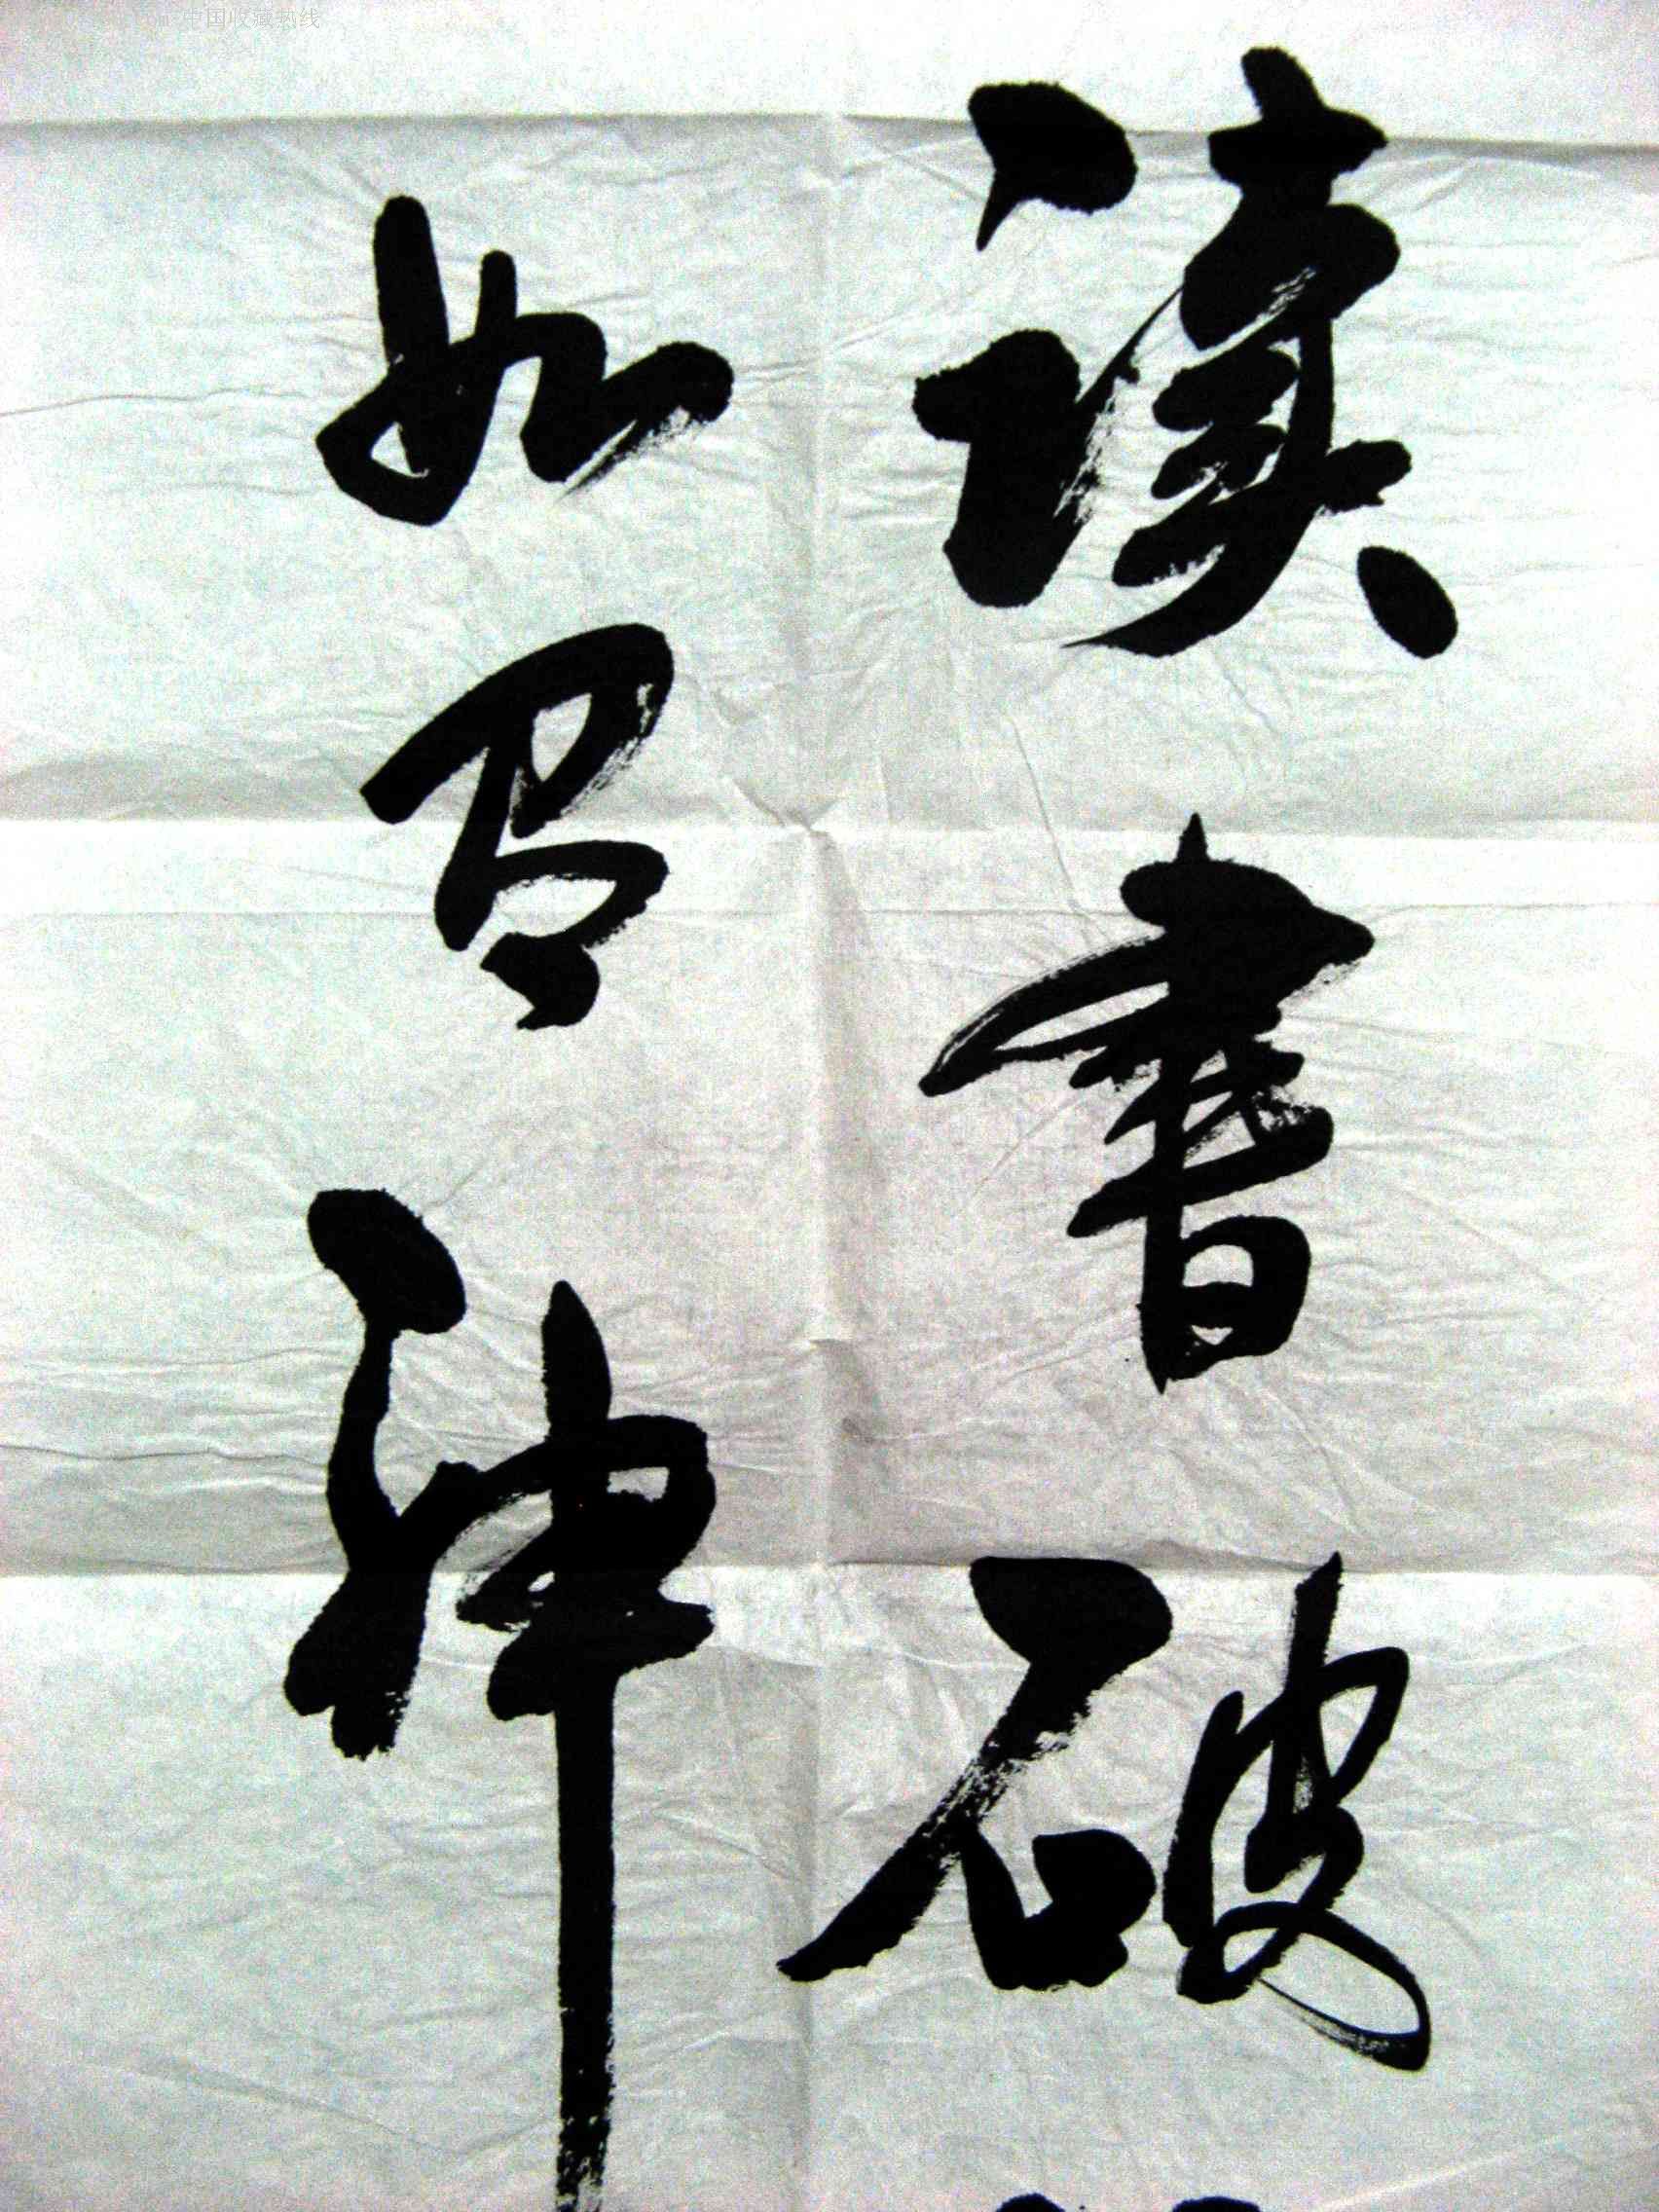 讀書破
如有神
中国收藏热线